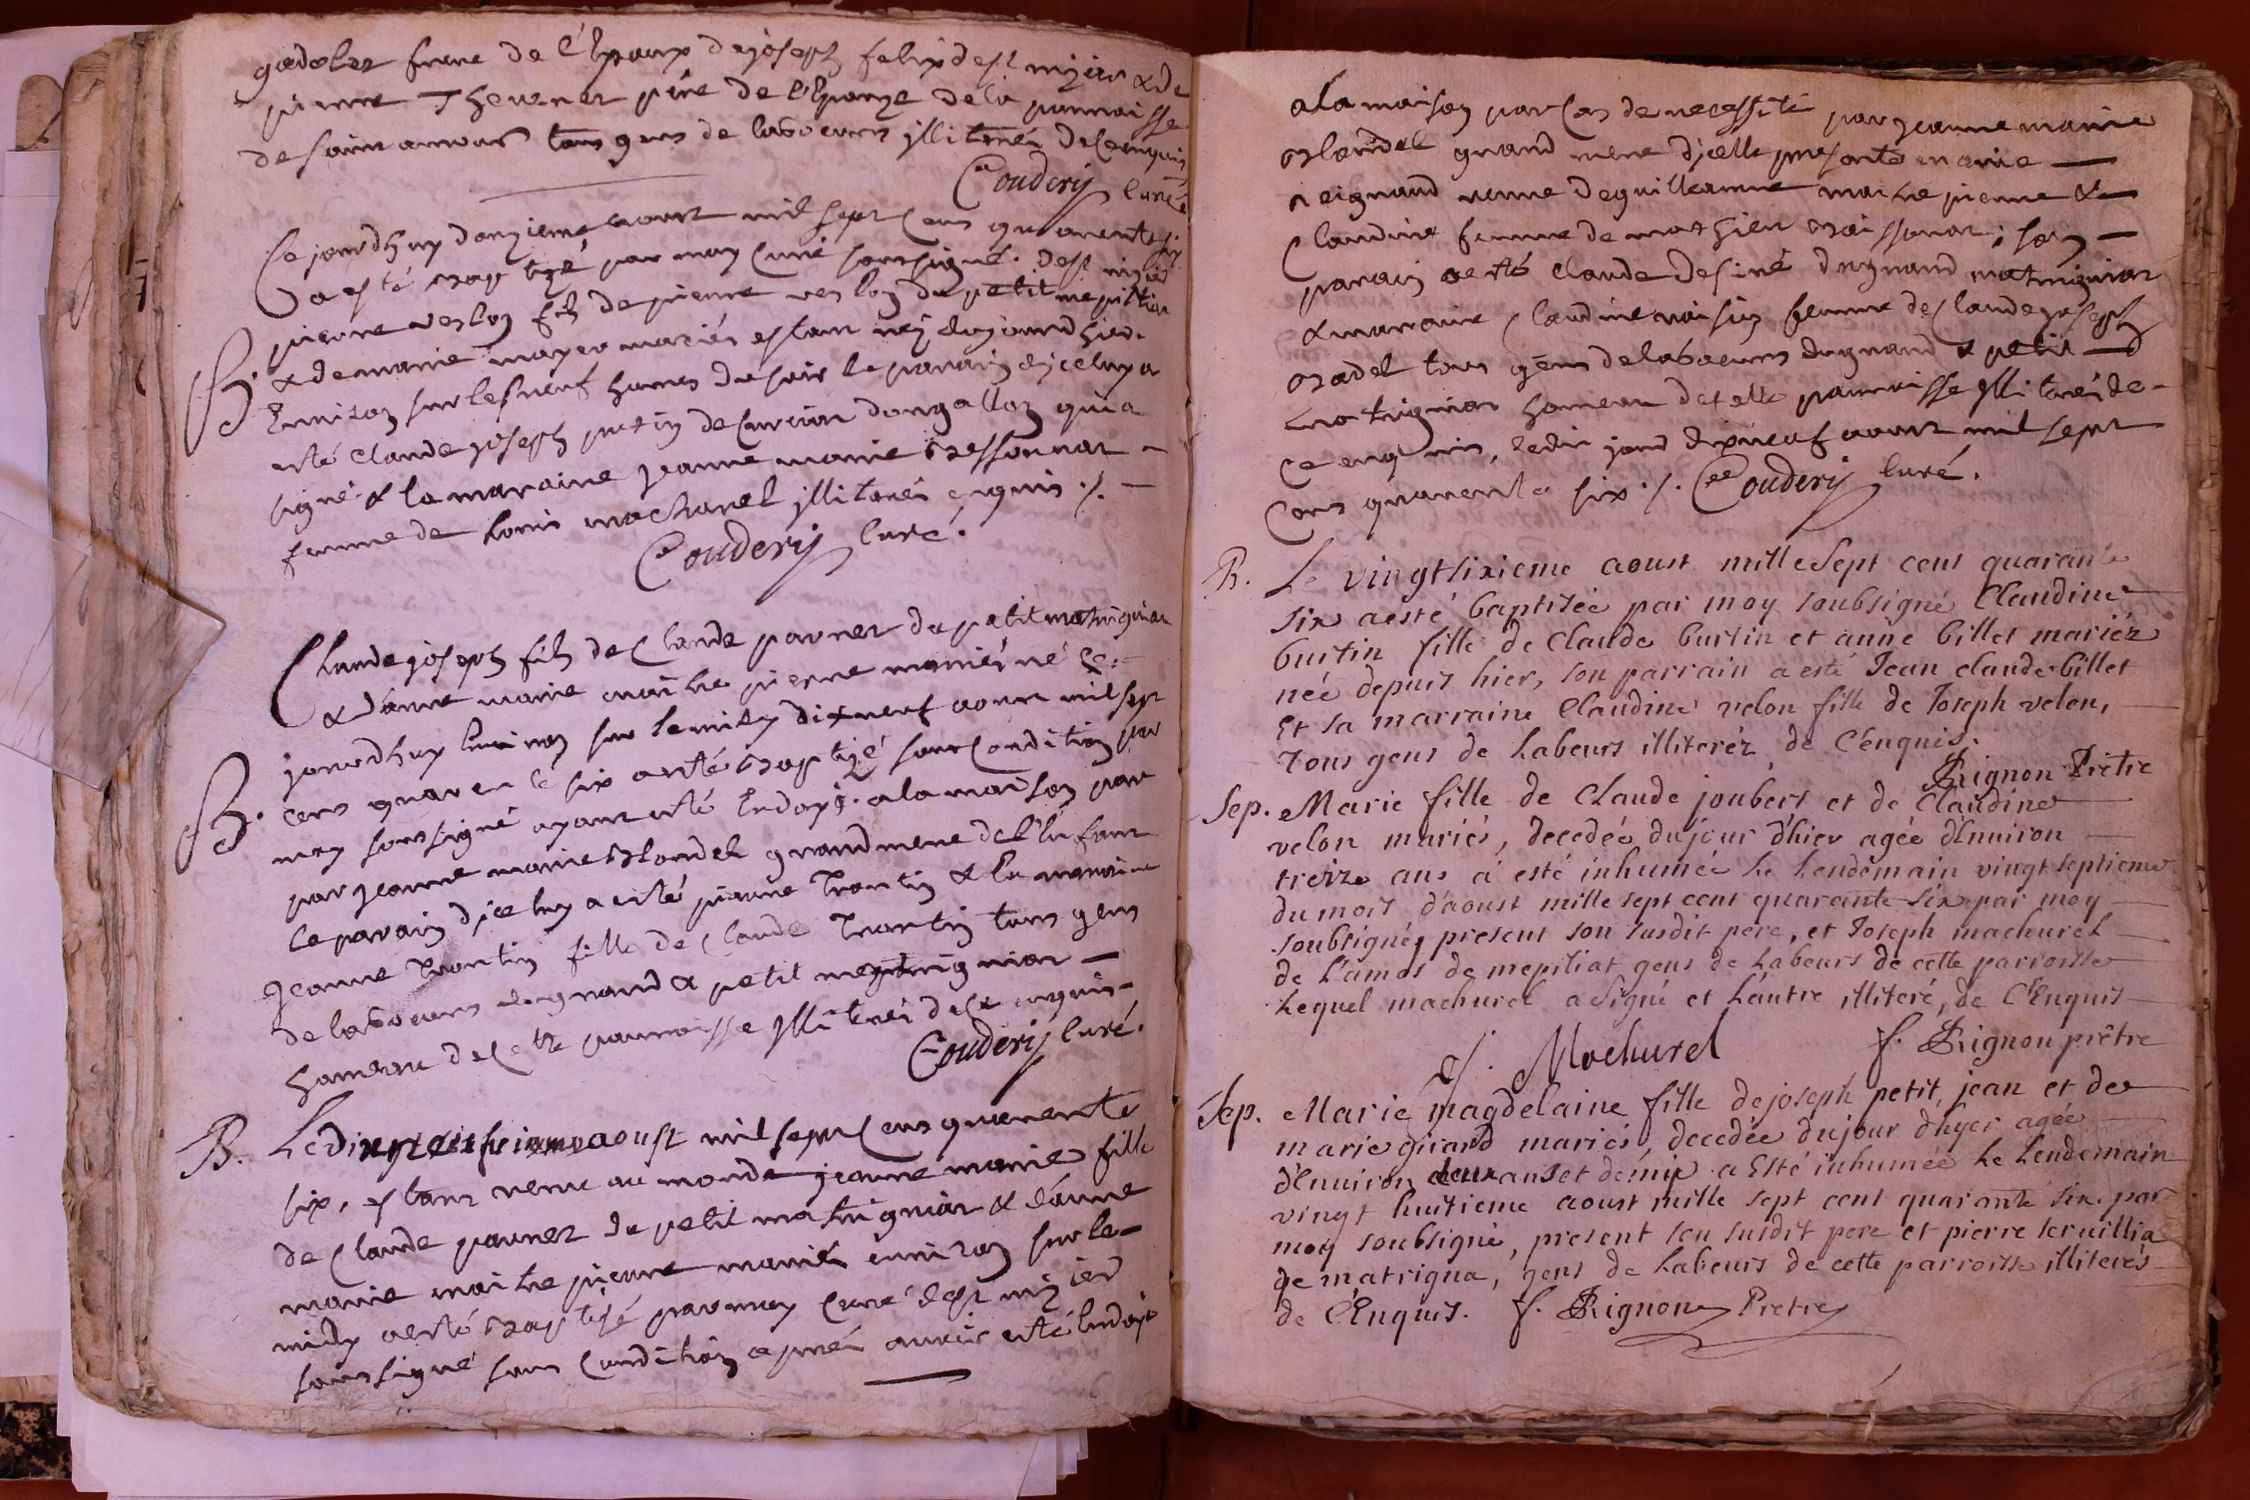 frere de l'Epoux de joseph felix de st nizier & de
pierre Thevenet père de l'Epouze de la parroisse
de saint amour tous gens de laboeurs illiterés de ce enquis
Couderij curé
Ce jourdhuy aoust mil sept cens quarente six
a esté baptizé par moy curé soussigné de st nizier
pierre veslon fils de pierre veslon du petit
& de marie mayer mariés estant néz du jourdhier
Environ sur les neuf heures du soir le parain d'jceluy a
esté Claude joseph putin de qui a
signé & la maraine jeanne marie bressonnat
femme de louis machurel illiterés enquis ./.
Couderij curé.
Claude joseph fils de Claude pavnet du petit matrignat
& d'anne marie maitre pierre mariés né ce
B. jourdhuy Environ sur le midy dixneuf aoust mil sept
cens quarente six a esté baptizé sous Condition par
moy soussigné ayant esté Endoyé a la maison par
par jeanne marie blondel grand mere de l'Enfant
le parain d'jceluy a esté pierre Trontin & la maraine
jeanne Trontin fille de Claude Trontin tous gens
de laboeurs du grand & petit matrignat
hameau de Cette parroisse illiterés de ce enquis
Couderij curé.
B. Le aoust mil sept Cens quarente
six, estant venue au monde jeanne marie fille
de Claude pavnet du petit matrignat & d'anne
marie maitre pierre mariés environ sur le
midy a esté baptisé par moy Curé de st nizier
soussigné sous Condition aprés avoir esté Endoyé
a la maison par Cas de necessité par jeanne marie
blondel grand mere d'jcelle presente marie
reignaud veuve de guilleaume maitre pierre &
Claudine femme de mathieu ; son
parain a esté Claude desiré du grand matrignat
& maraine Claudine voisin femme de Claude joseph
badel tous gens de laboeurs du grand & petit
matrignat hameau de cette parroisse illiterés de
ce enquis, ledit jour dixneuf aoust mil sept
Cens quarente six ./. Couderij curé.
B. Le vingtsixieme aoust mille sept cent quarante
six a esté baptisée par moy soubsigné Claudine
burtin fille de Claude burtin et anne billet mariéz
née depuis hier, son parrain a esté Jean claude billet
Et sa marraine Claudine velon fille de Joseph velon,
Tous gens de Labeurs illiteréz de C'enquis.
Rignon Prêtre
Sep. Marie fille de Claude joubert et de Claudine
velon mariés, decedée du jour d'hier agée d'Environ
treize ans a esté inhumée le Lendemain vingt septieme
du mois d'aoust mille sept cent quarante six par moy
soubsigné, present son susdit pere, et Joseph machurel
de L'amas de mepiliat gens de Labeurs de cette parroisse
Lequel machurel a signé et L'autre illiteré, de C'Enquis
J. Machurel f. Rignon prêtre
Sep. Marie magdelaine fille de joseph petit, jean et de
marie girard mariés, decedée du jour d'hyer agée
d'Environ deux ans et demie a Esté inhumée Le Lendemain
vingt huitieme aoust mille sept cent quarante six par
moy soubsigné, present son susdit pere et pierre servillia
de matrigna, gens de Labeurs de cette parroisse illiterés
de C'Enquis. f. Rignon Pretre